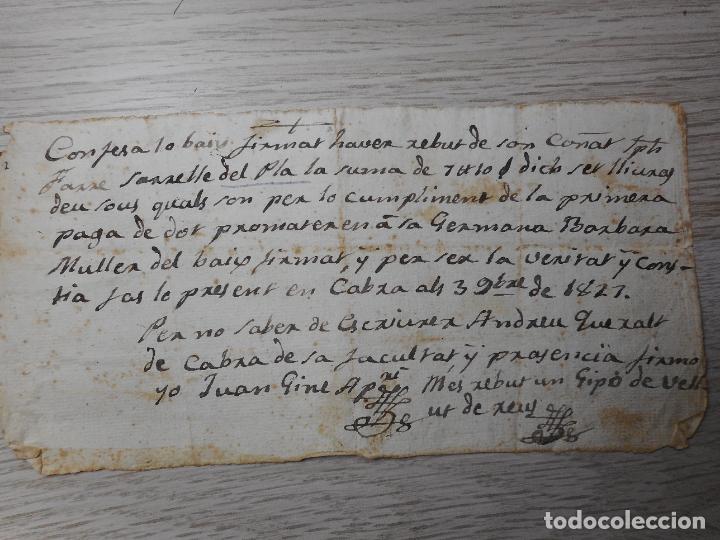 Confesa lo baix firmat haver rebut de son Coñat Jph
Farre sarralle del Pla la suma de 7 ll 10 s dich set lliuras
deu sous quals son per lo cumpliment de la primera
paga de dot promateren â sa Germana Barbara
Muller del baix firmat, ÿ per ser la veritat ÿ cons-
tia fas lo present en Cabra als 3 9bre de 1827.
Per no saber de Escriurer Andreu Queralt
de Cabra de sa facultat ÿ presencia firmo
yo Juan Gine Mes rebut un Gipó de vell
ut de reus
todocoleccion.net